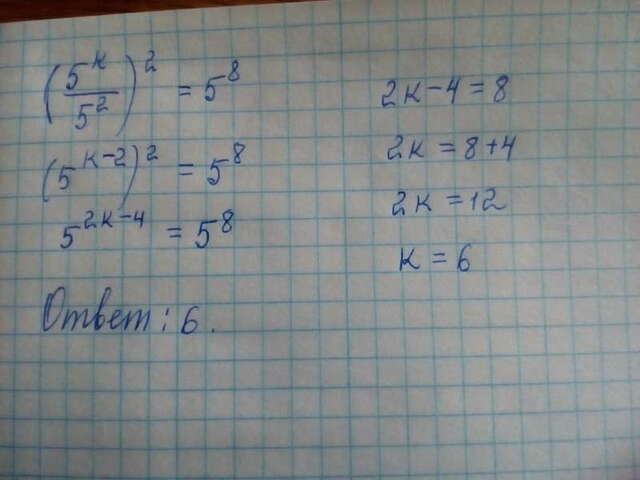 (5^к/5^2)^2 = 5^8
(5^(к-2))^2 = 5^8
5^(2к-4) = 5^8
2к-4=8
2к = 8+4
2к = 12
к = 6
Ответ: 6.